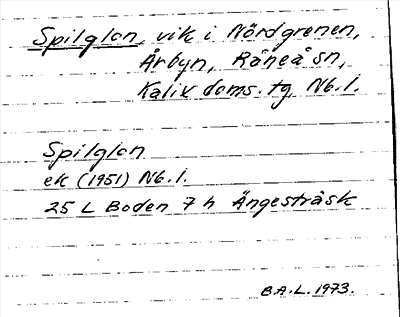 Spilglon, vik i Nördgrenen,
Årbyn, Råneå sn,
Kalix doms. tg, Nb. l.
Spilglon
ek (1951) Nb. l.
25 L Boden 7 h Ängesträsk
B.A.L. 1973.